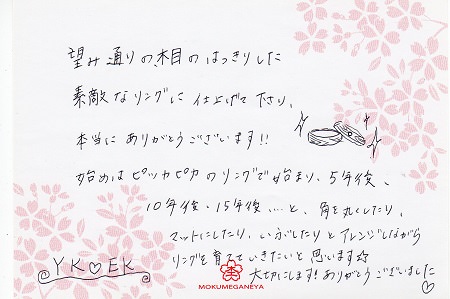 望み通りの木目のはっきりした
素敵なリングに仕上げて下さり、
本当にありがとうございます!!
始めはピッカピカのリングで始まり、5年後、
10年後・15年後…と、角を丸くしたり、
マットにしたり、いぶしたりとアレンジしながら
リングを育てていきたいと思います☆
大切にします!ありがとうございました♡
YK♡EK
MOKUMEGANEYA